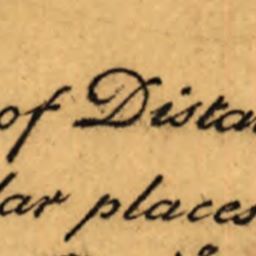 of Distan
lar places